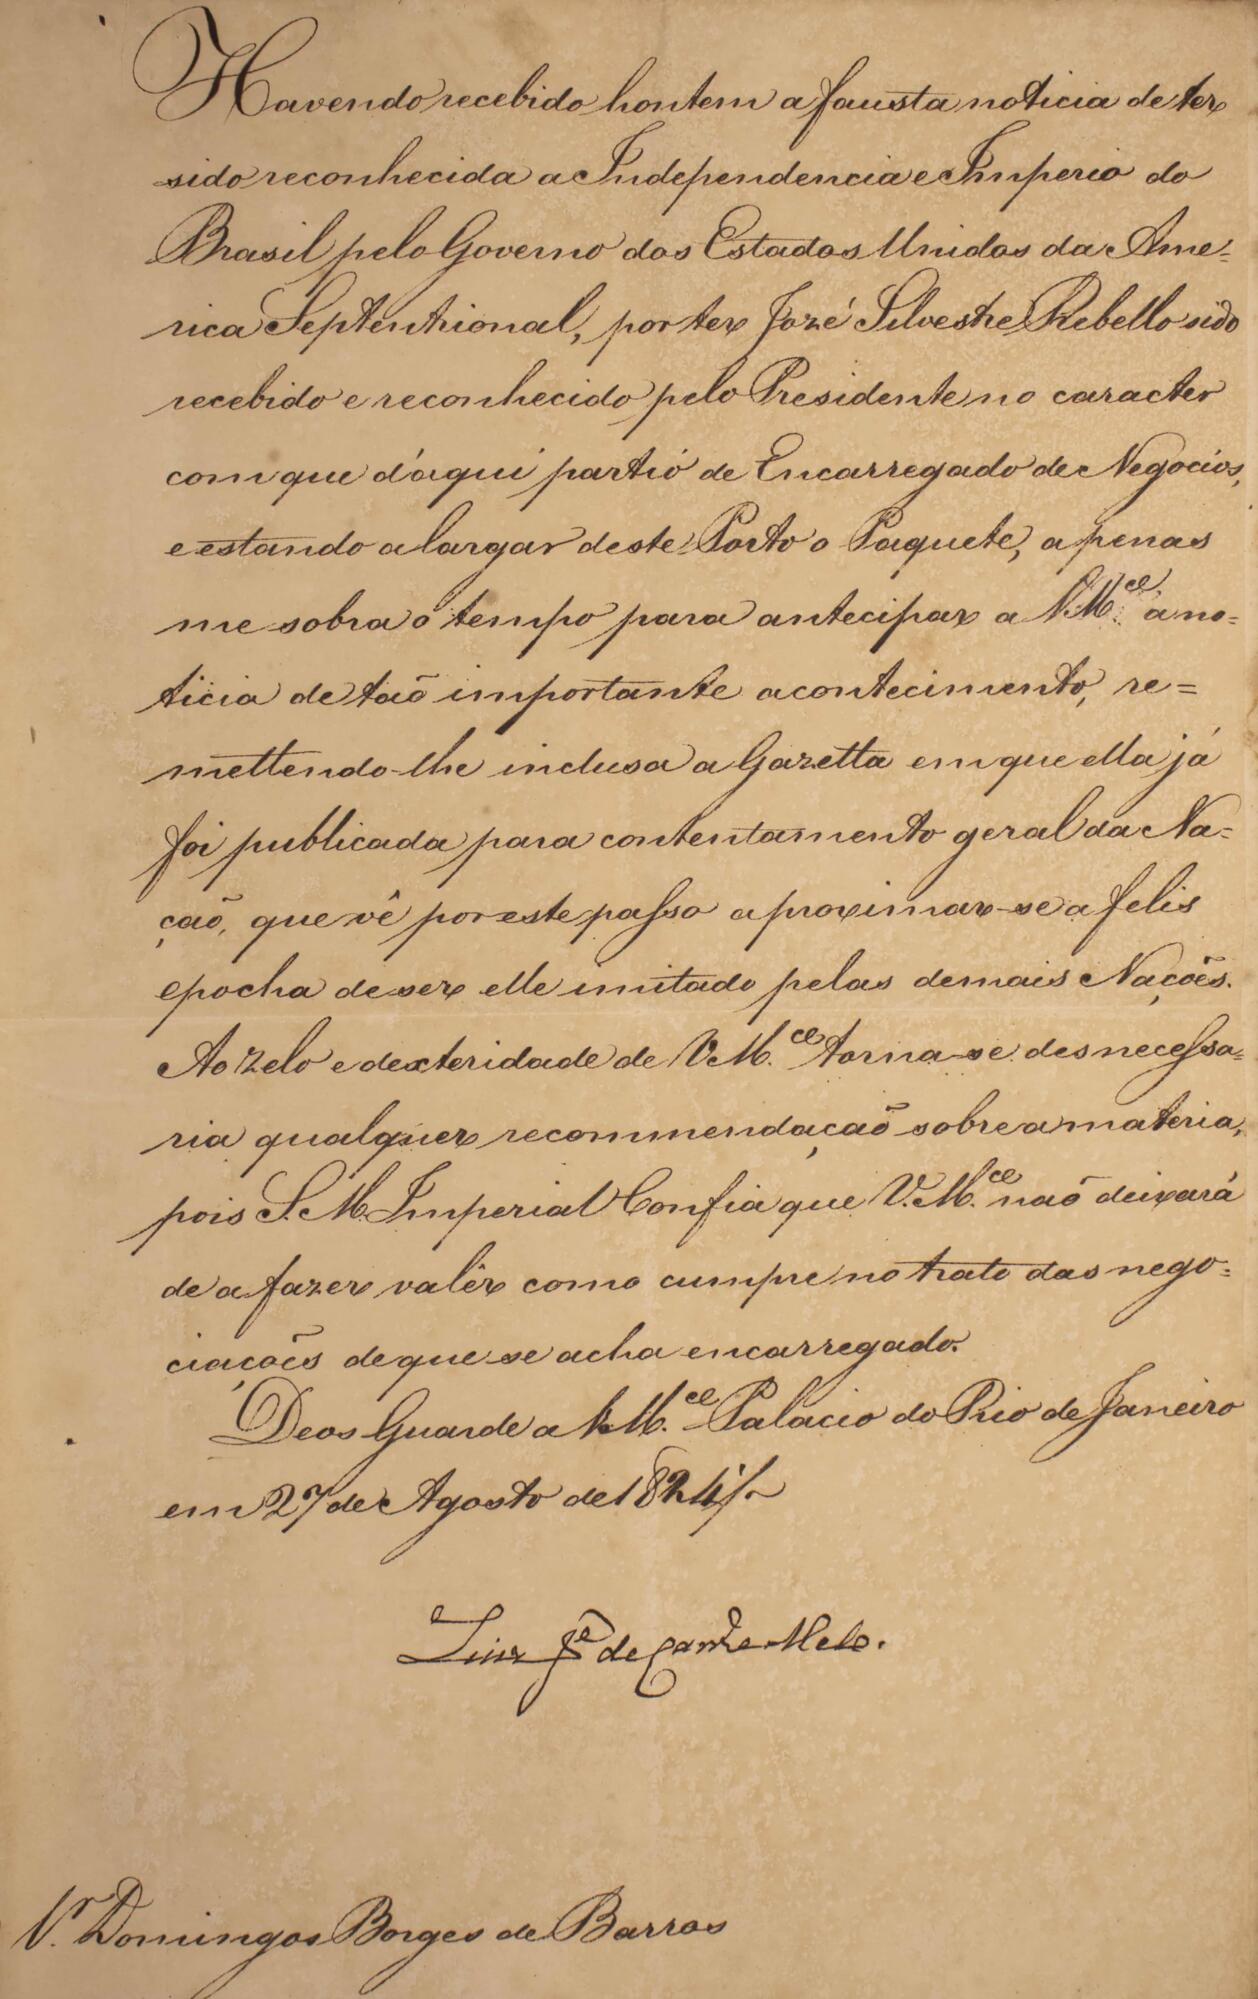 Havendo recebido hontem a fausta noticia de ter
sido reconhecida a Independencia e Imperio do
Brasil pelo Governo dos Estados Unidos da Ame=
rica Septentrional, por ter Jozé Silvestre Rebello sido
recebido e reconhecido pelo Presidente no caracter
com que d'aqui partió de Encarregado de Negocios,
e estando a largar deste Porto o Paquete, apenas
me sobra o tempo para antecipar a V.M.ce a no=
ticia de taõ importante acontecimento, re=
mettendo-lhe inclusa a Gazetta em que ella já
foi publicada para contentamento geral da Na=
çaõ, que vê por este passo aproximar-se a felis
epocha de ser elle imitado pelas demais Naçoẽs.
Ao zelo e dexteridade de V.M.ce torna-se desnecessa=
ria qualquer recommendaçaõ sobre a materia,
pois S.M. Imperial Confia que V.M.ce naõ deixará
de a fazer valêr como cumpre no trato das nego=
ciaçoẽs de que se acha encarregado.
Deos Guarde a V.M.ce Palacio do Rio de Janeiro
em 27 de Agosto de 1824
Luiz Jé de Carvo e Mello.
Sr. Domingos Borges de Barros